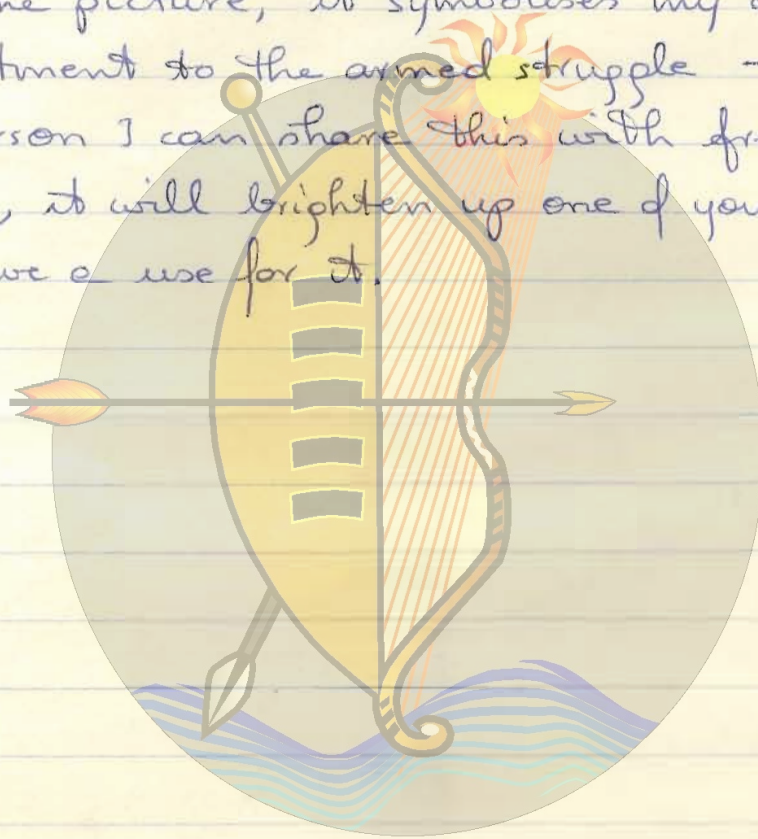 picture, it symbolises my
tment to the armed struggle -
rson I can share this with fr
, it will brighten up one of you
ve a use for it.